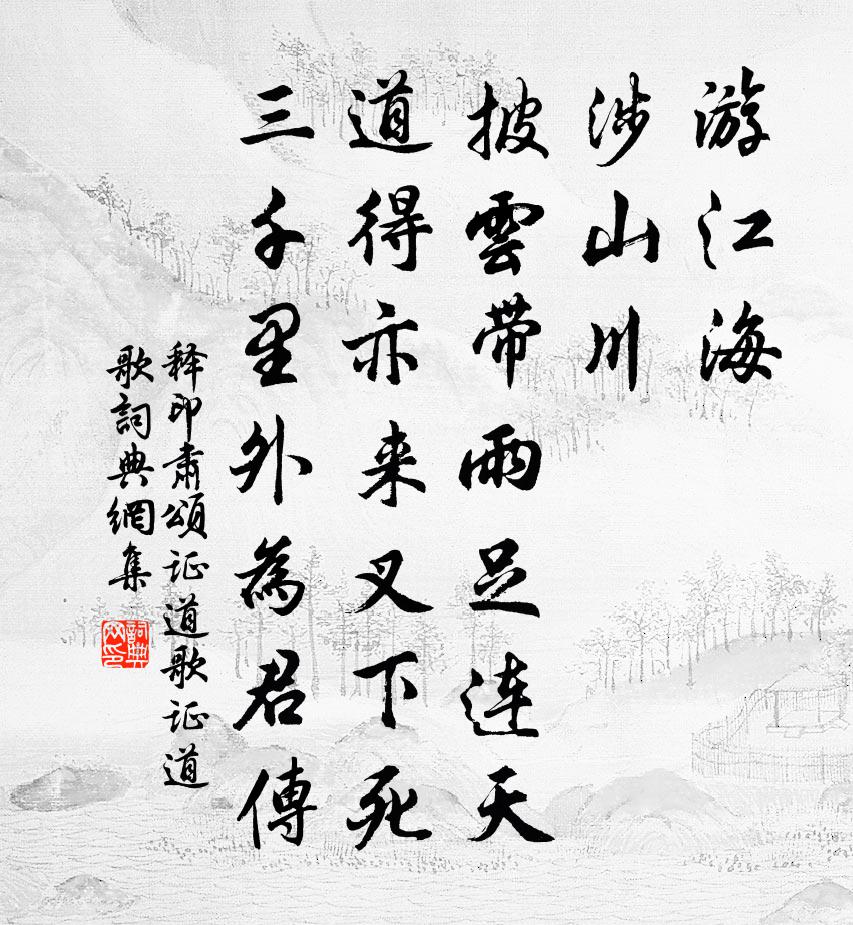 游江海
涉山川
披雲带雨足连天
道得亦来叉下死
三千里外為君傳
释印肅頌证道歌证道
歌詞典網集
詞典
网印